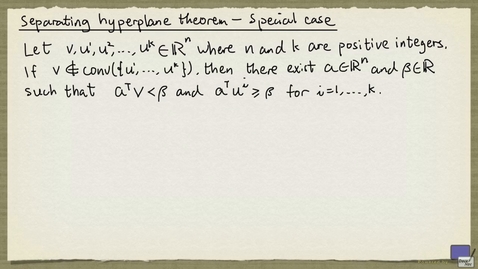 Separating hyperplane theorem – Special case
Let v, u¹, u², ..., uᵏ ∈ ℝⁿ where n and k are positive integers.
If v ∉ conv({u¹, ..., uᵏ}), then there exist a ∈ ℝⁿ and β ∈ ℝ
such that aᵀv < β and aᵀuⁱ ≥ β for i=1, ..., k.